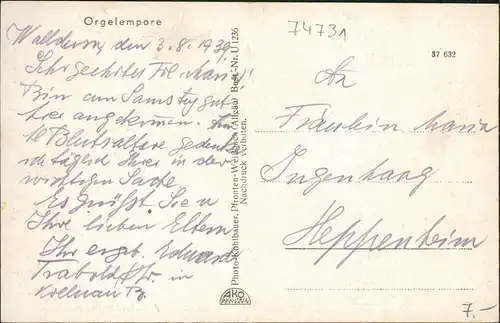 Orgelempore
Walldürn, den 3.8.1939
Sehr geehrtes Frl. Maria!
Bin am Samstag gut
hier angekommen. Am
Hl. Blutsaltare gedenke
ich täglich Ihrer in der
wichtigen Sache
Es grüßt Sie u.
Ihre lieben Eltern
Ihr ergb. Eduard
Trabold in
Kollnau
Photo Kohlbauer, Pfronten-Weißbach (Allgäu) Best.-Nr. U 1236
Nachdruck verboten.
AKO
7473a
37 632
An
Fräulein Maria
Ingenhaag
Heppenheim
7.-